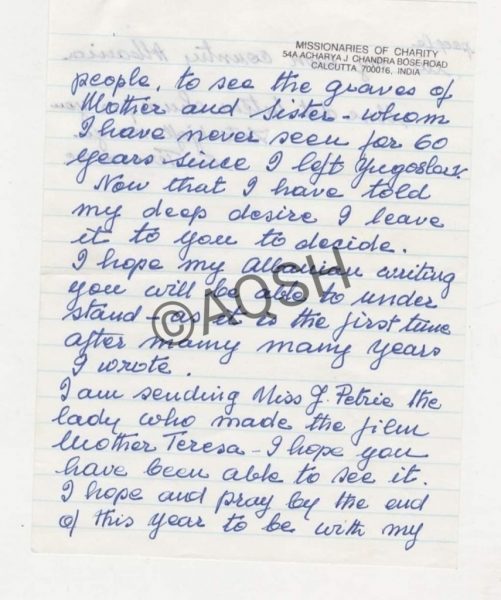 MISSIONARIES OF CHARITY
54A ACHARYA J. CHANDRA BOSE ROAD
CALCUTTA 700016, INDIA
people, to see the graves of
Mother and Sister - whom
I have never seen for 60
years since I left Yugoslav.
Now that I have told
my deep desire I leave
it to you to decide.
I hope my Albanian writing
you will be able to under
stand - as it is the first time
after many many years
I wrote.
I am sending Miss J. Petrie the
lady who made the film
Mother Teresa - I hope you
have been able to see it.
I hope and pray by the end
of this year to be with my
©AQSH